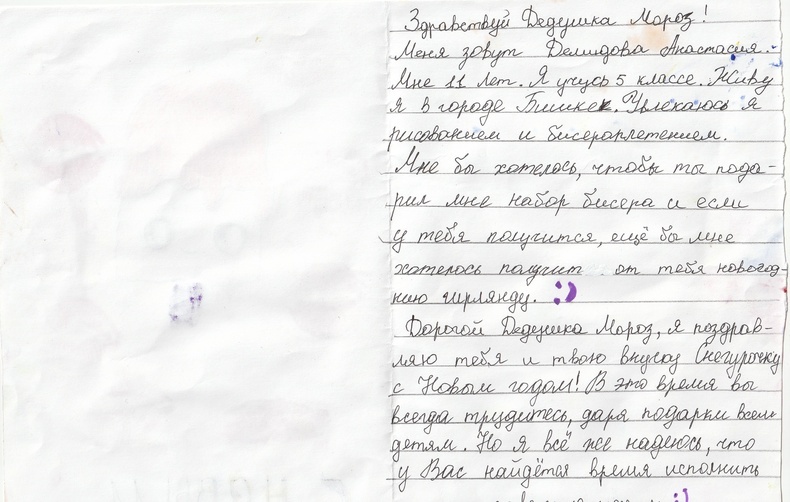 Здравствуй Дедушка Мороз!
Меня зовут Демидова Анастасия.
Мне 11 лет. Я учусь 5 классе. Живу
я в городе Бишкек. Увлекаюсь я
рисованием и бисероплетением.
Мне бы хотелось, чтобы ты пода-
рил мне набор бисера и если
у тебя получится, ещё бы мне
хотелось получит от тебя новогод-
нию гирлянду. :)
Дорогой Дедушка Мороз, я поздрав-
ляю тебя и твою внучку Снегурочку
с Новым годом! В это время вы
всегда трудитесь, даря подарки всем
детям. Но я всё же надеюсь, что
у Вас найдётся время исполнить
:)